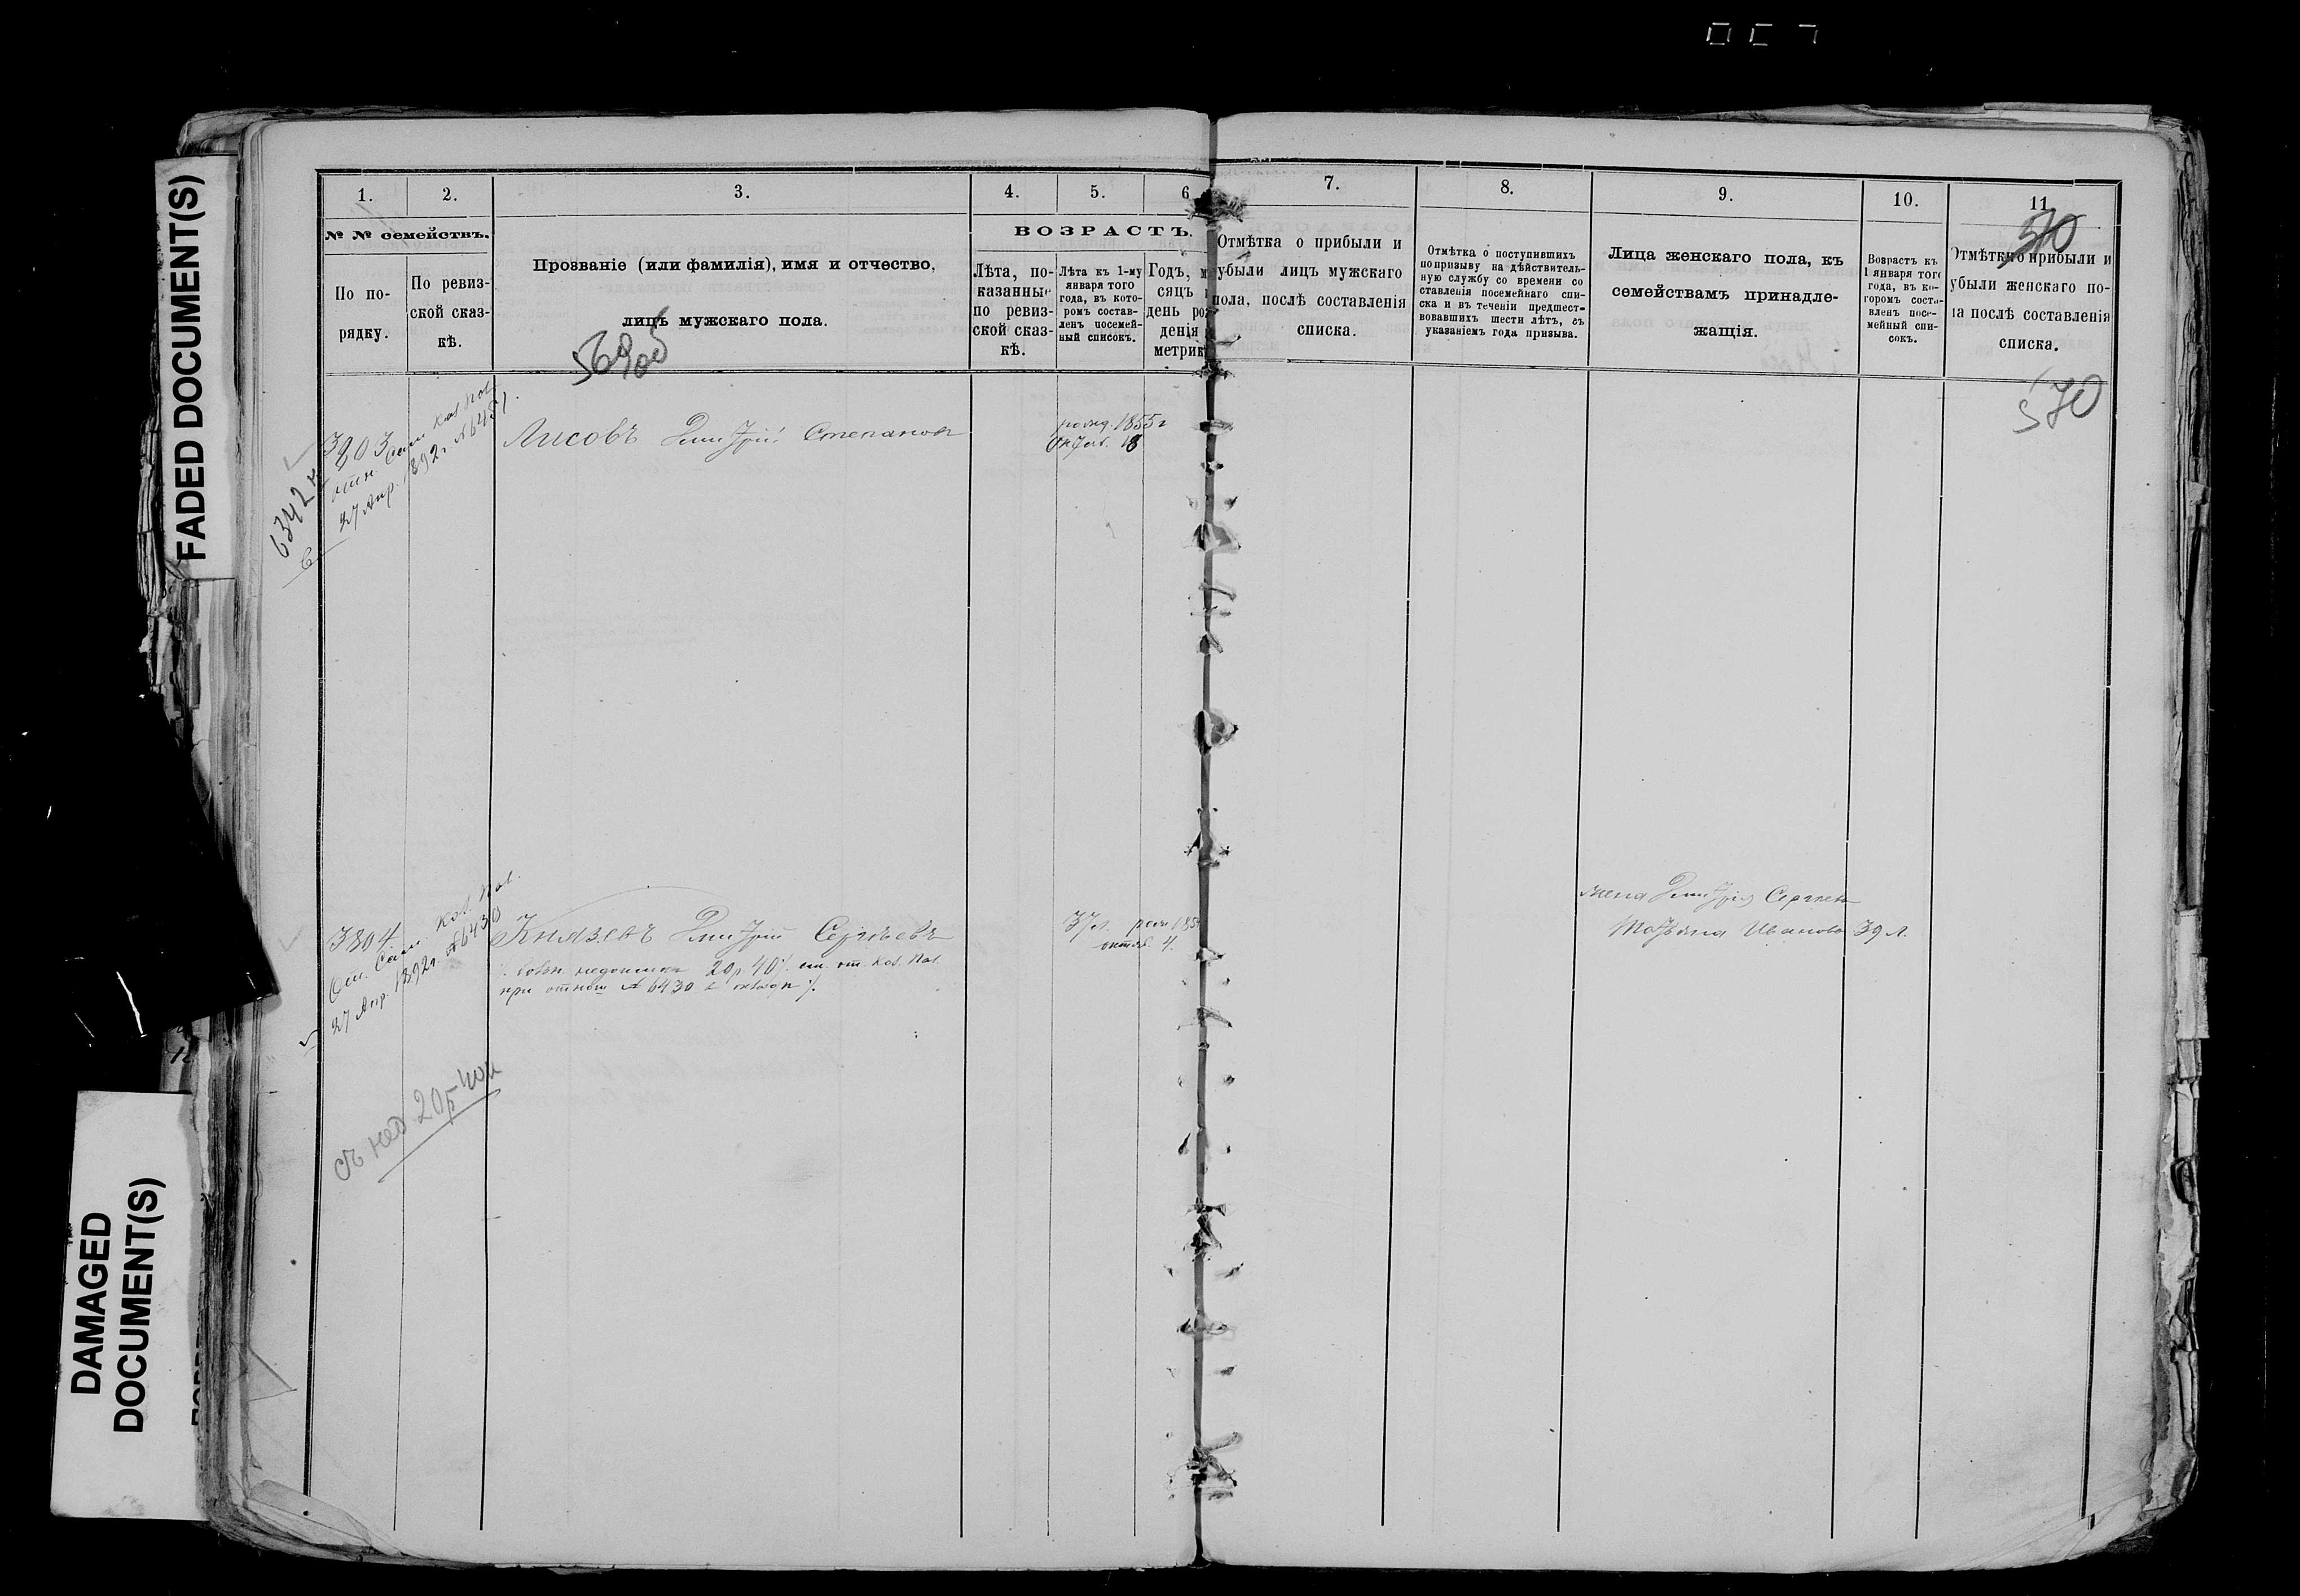 FADED DOCUMENT(S)
DAMAGED
DOCUMENT(S)
1.
2.
3.
4.
5.
6
7.
8.
9.
10.
11
№ № семействъ.
По по-
рядку.
По ревиз-
ской сказ-
кѣ.
Прозваніе (или фамилія), имя и отчество,
лицъ мужскаго пола.
569 об
ВОЗРАСТЪ.
Лѣта, по-
казанные
по ревиз-
ской сказ-
кѣ.
Лѣта къ 1-му
января того
года, въ кото-
ромъ состав-
ленъ посемей-
ный списокъ.
Годъ, м
сяцъ
день ро
денія
метрик
Отмѣтка о прибыли и
убыли лицъ мужскаго
пола, послѣ составленія
списка.
Отмѣтка о поступившихъ
по призыву на дѣйствитель-
ную службу со времени со
ставленія посемейнаго спи-
ска и въ теченіи предшест-
вовавшихъ шести лѣтъ, съ
указаніемъ года призыва.
Лица женскаго пола, къ
семействамъ принадле-
жащія.
Возрастъ къ
1 января того
года, въ ко-
торомъ соста-
вленъ посе-
мейный спи-
сокъ.
Отмѣтка о прибыли и
убыли женскаго по-
ла послѣ составленія
списка.
570
570
3803
отн. Сам. Каз. Пал.
27 Апр. 1892 г. № 6451.
6342
Лисовъ Дмитрій Степановъ
рожд. 1855 г
Октяб. 18
3804
От. Сам. Каз. Пал.
27 Апр. 1892 г. № 6430
Князевъ Дмитрій Сергѣевъ
недоимка 20 р 40 к. от. Каз. Пал.
при отнош № 6430
37 л.
октяб. 4.
жена Дмитрія Сергѣев
Татьяна Иванова
39 л.
съ нед. 20 р 40 к